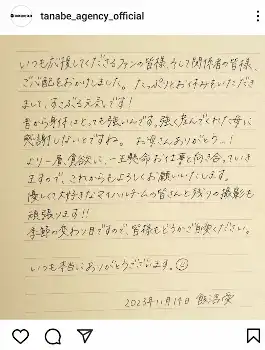 tanabe_agency_official
いつも応援してくださるファンの皆様、そして関係者の皆様、
ご心配をおかけしました。たっぷりとお休みをいただき
まして、すこぶる元気です！
昔から身体はとっても強いんです。強く産んでくれた母に
感謝しないとですね。お母さんありがとう…！
より一層、貪欲に、一生懸命お仕事と向き合っていき
ますので、これからもよろしくお願いいたします。
優しくて大好きなマイハルチームの皆さんと残りの撮影も
頑張ります!!
季節の変わり目ですので、皆様もどうかご自愛ください。
いつも本当にありがとうございます。
2023年11月19日 飯沼愛